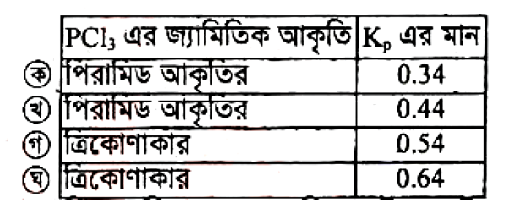 PCl₃ এর জ্যামিতিক আকৃতি K_p এর মান
ক পিরামিড আকৃতির 0.34
খ পিরামিড আকৃতির 0.44
গ ত্রিকোণাকার 0.54
ঘ ত্রিকোণাকার 0.64